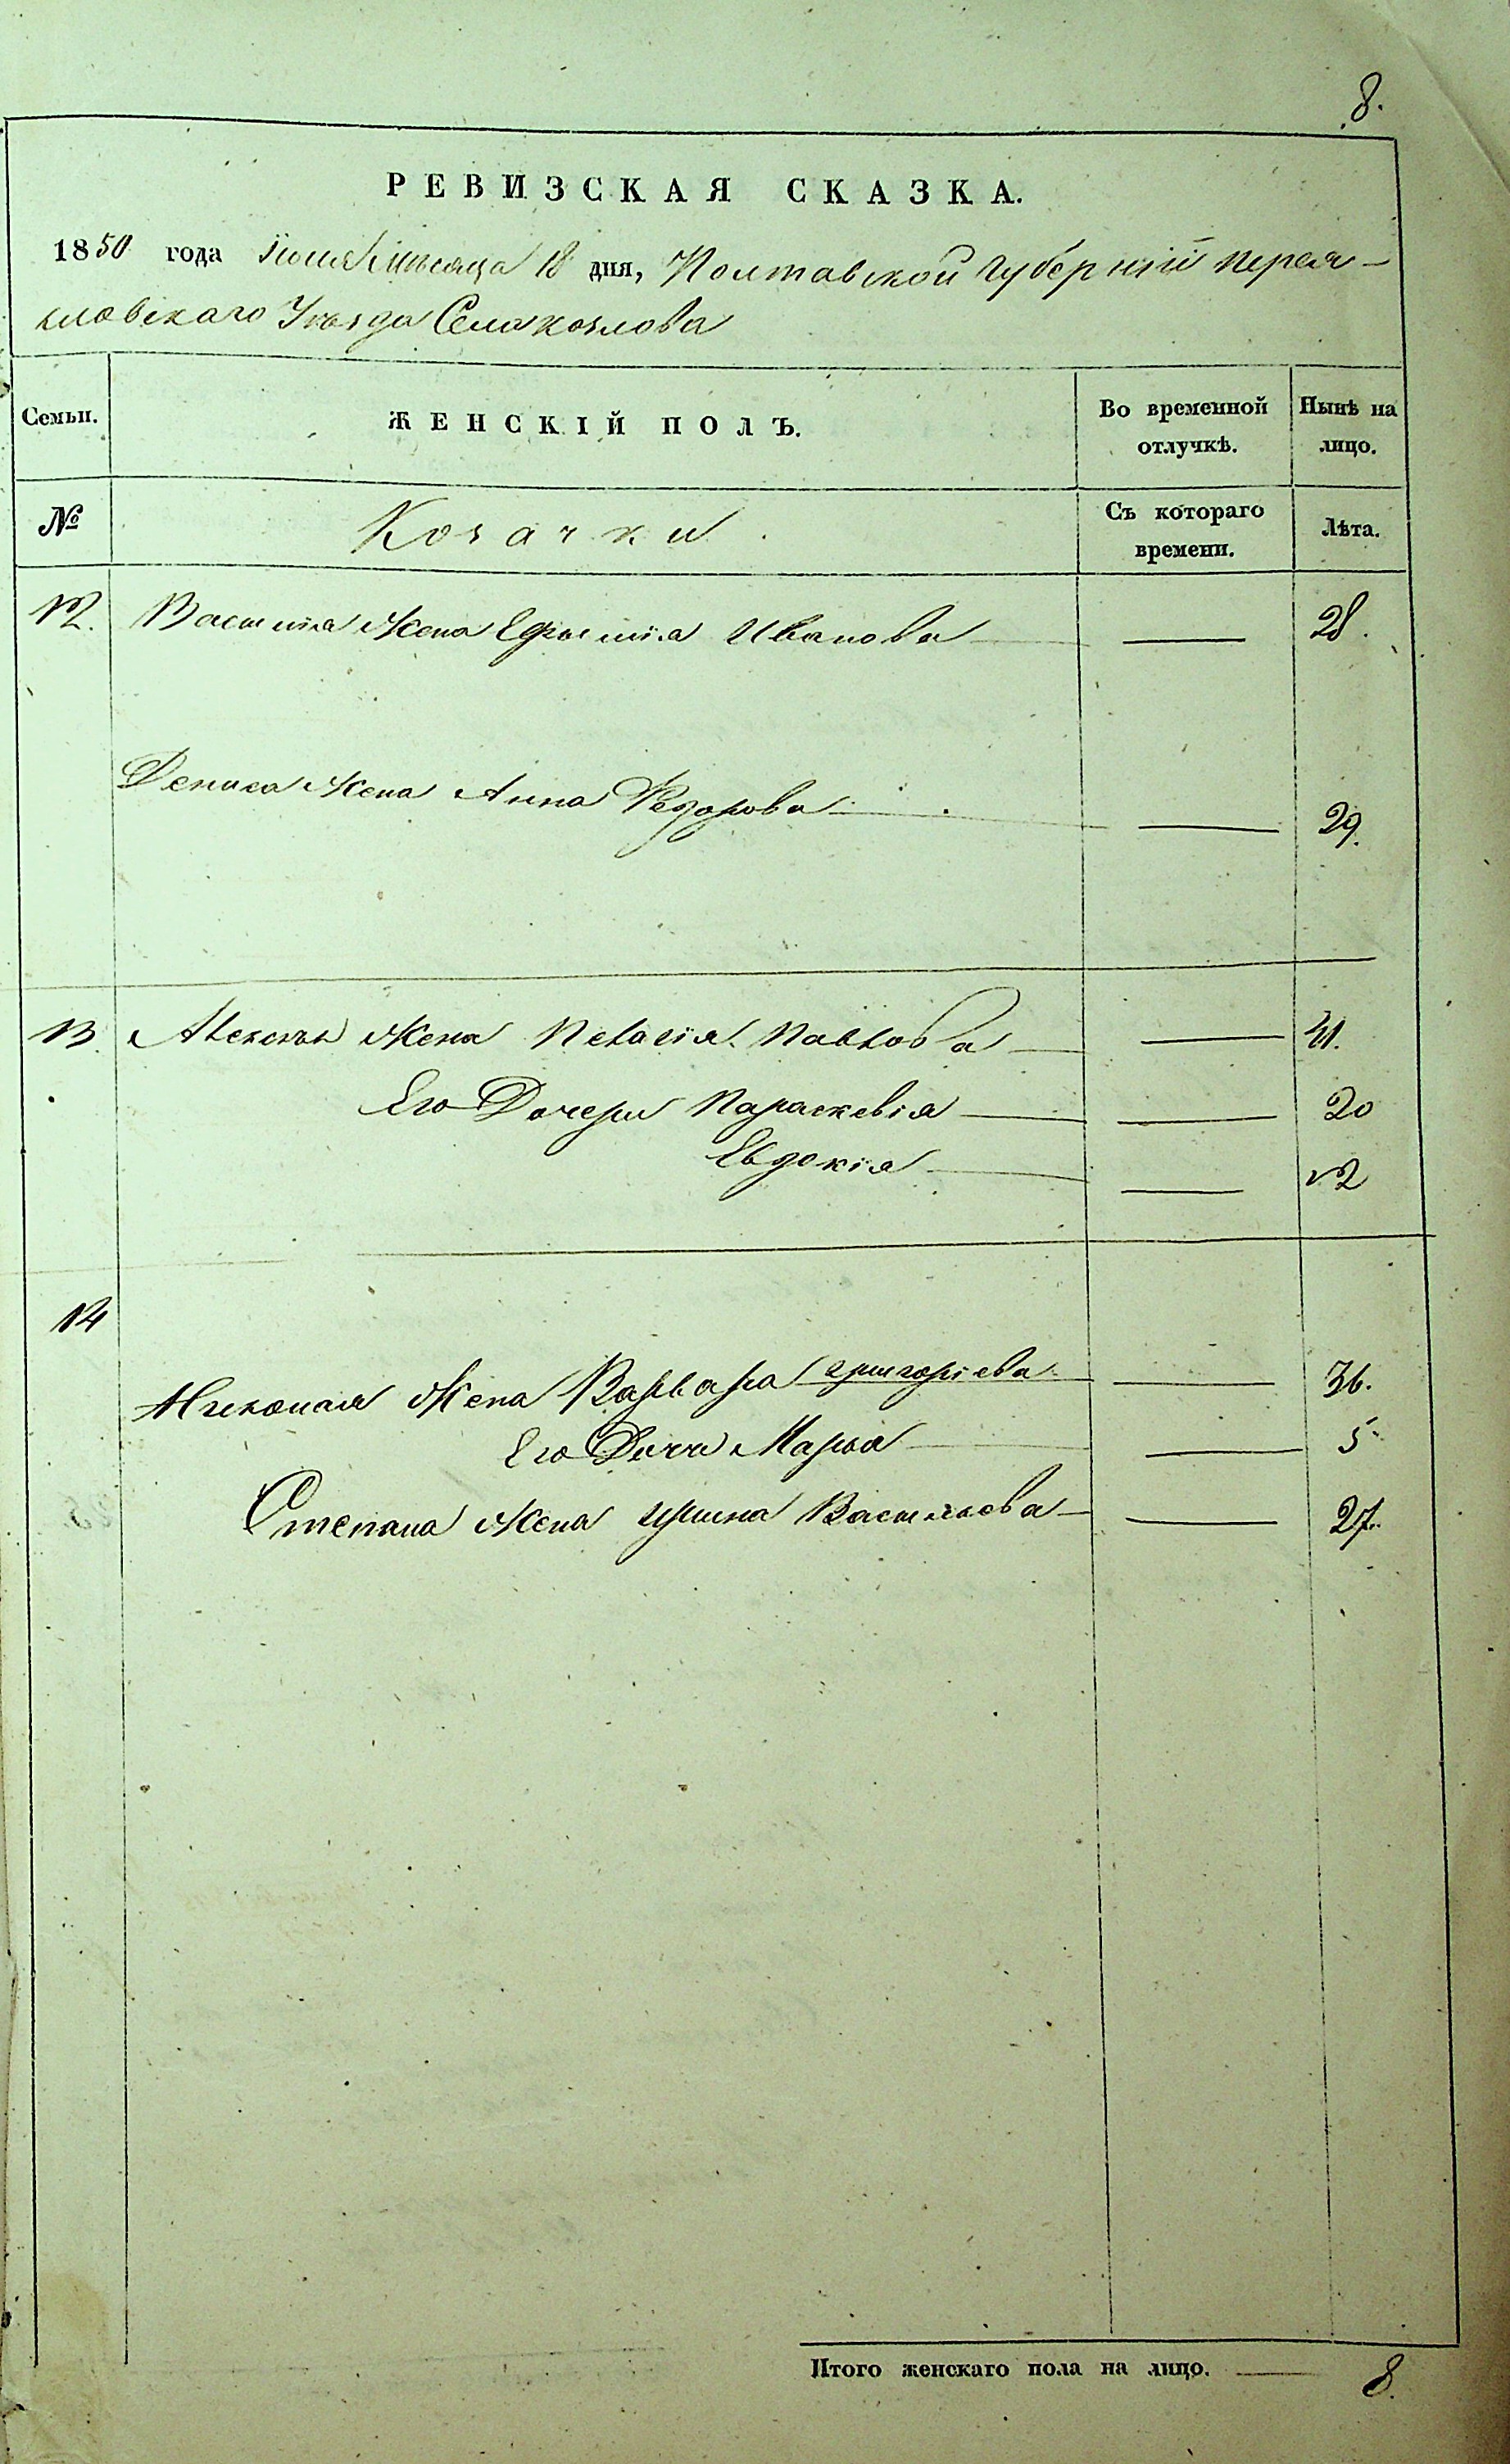 8.
РЕВИЗСКАЯ СКАЗКА.
1850 года мѣсяца 18 дня, Полтавской Губерніи Перея-
словскаго Уѣзда Села Козлова
Семьи.
ЖЕНСКІЙ ПОЛЪ.
Во временной отлучкѣ.
Нынѣ на лицо.
№
Козачки
Съ котораго времени.
Лѣта.
12. Василія Жена Ефросинія Иванова — 28.
Дениса Жена Анна Федорова — 29.
13. Алексѣя Жена Пелагія Павлова — 41.
Его Дочери Параскевія — 20
Евдокія — 12
14
Николая Жена Варвара Григоріева — 36.
Его Дочь Марья — 5
Степана Жена Ирина Васильева — 27.
Итого женскаго пола на лицо. — 8.